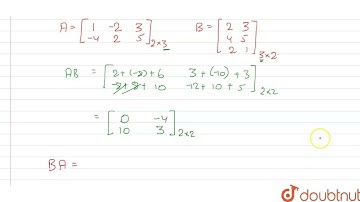 A = [ 1 -2 3 B = [ 2 3
-4 2 5 ]2×3 4 5
2 1 ]3×2
AB = [ 2+(-8)+6 3+(-10)+3
-8+8+10 -12+10+5 ]2×2
= [ 0 -4
10 3 ]2×2
BA =
doubtnut